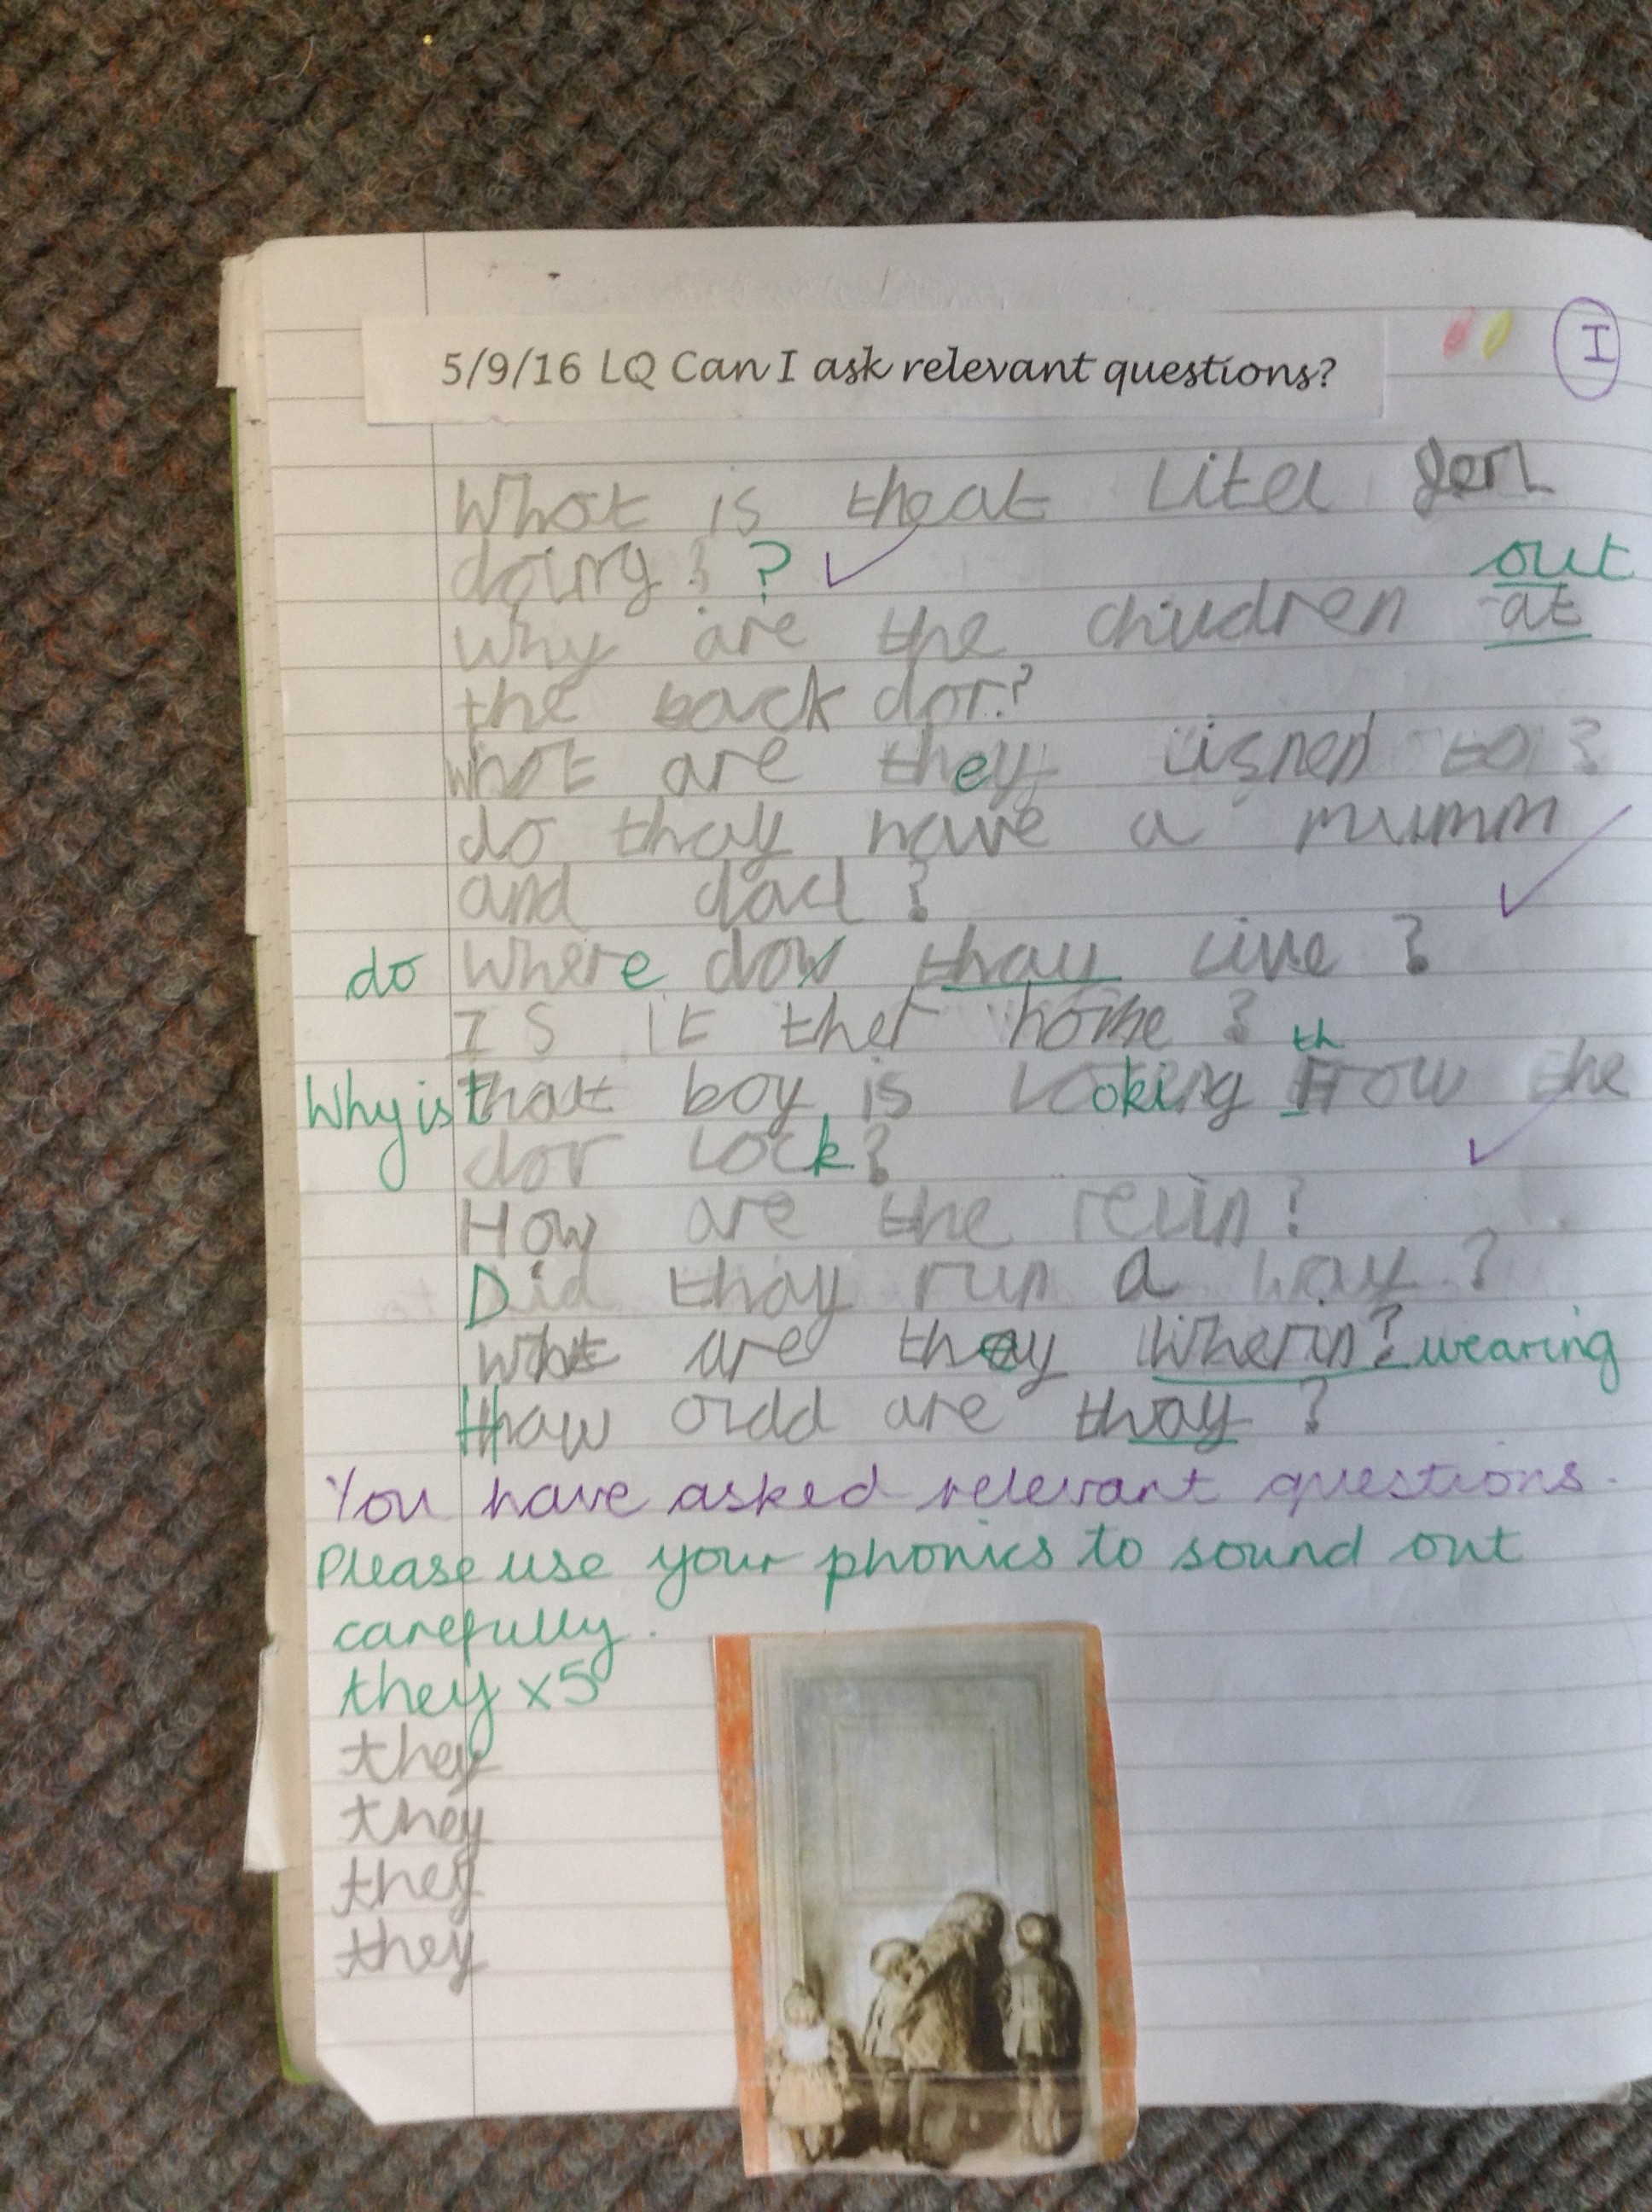 5/9/16 LQ Can I ask relevant questions?
I
What is theat Litel gerl
doing? ?
out
Why are the children at
the back dor?
what are they lisnen to?
do thay have a mumm
and dad?
do Where dow thay live?
Is it ther home?
th
Why is that boy is looking trow the
dor lock?
How are the
Did thay run a way?
what are they wherin? wearing
Hhaw oldd are thay?
You have asked relevant questions.
Please use your phonics to sound out
carefully.
they x5
they
they
they
they